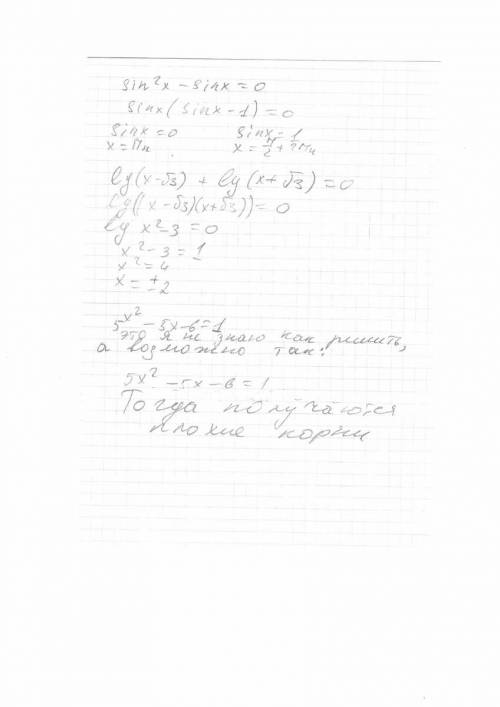 sin²x - sinx = 0
sinx( sinx - 1) = 0
sinx = 0 sinx = 1
x = πn . x = π/2 + 2πn
lg(x-√3) + lg(x+√3) = 0
lg((x-√3)(x+√3)) = 0
lg x²-3 = 0
x²-3 = 1
x² = 4
x = ±2
5^x² - 5x - 6 = 1
это я не знаю как решить,
а возможно так:
5x² - 5x - 6 = 1
Тогда получаются
плохие корни